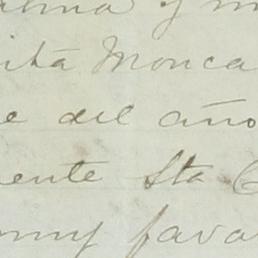 y
ita Monca
e del año
ente Sta C
my fava